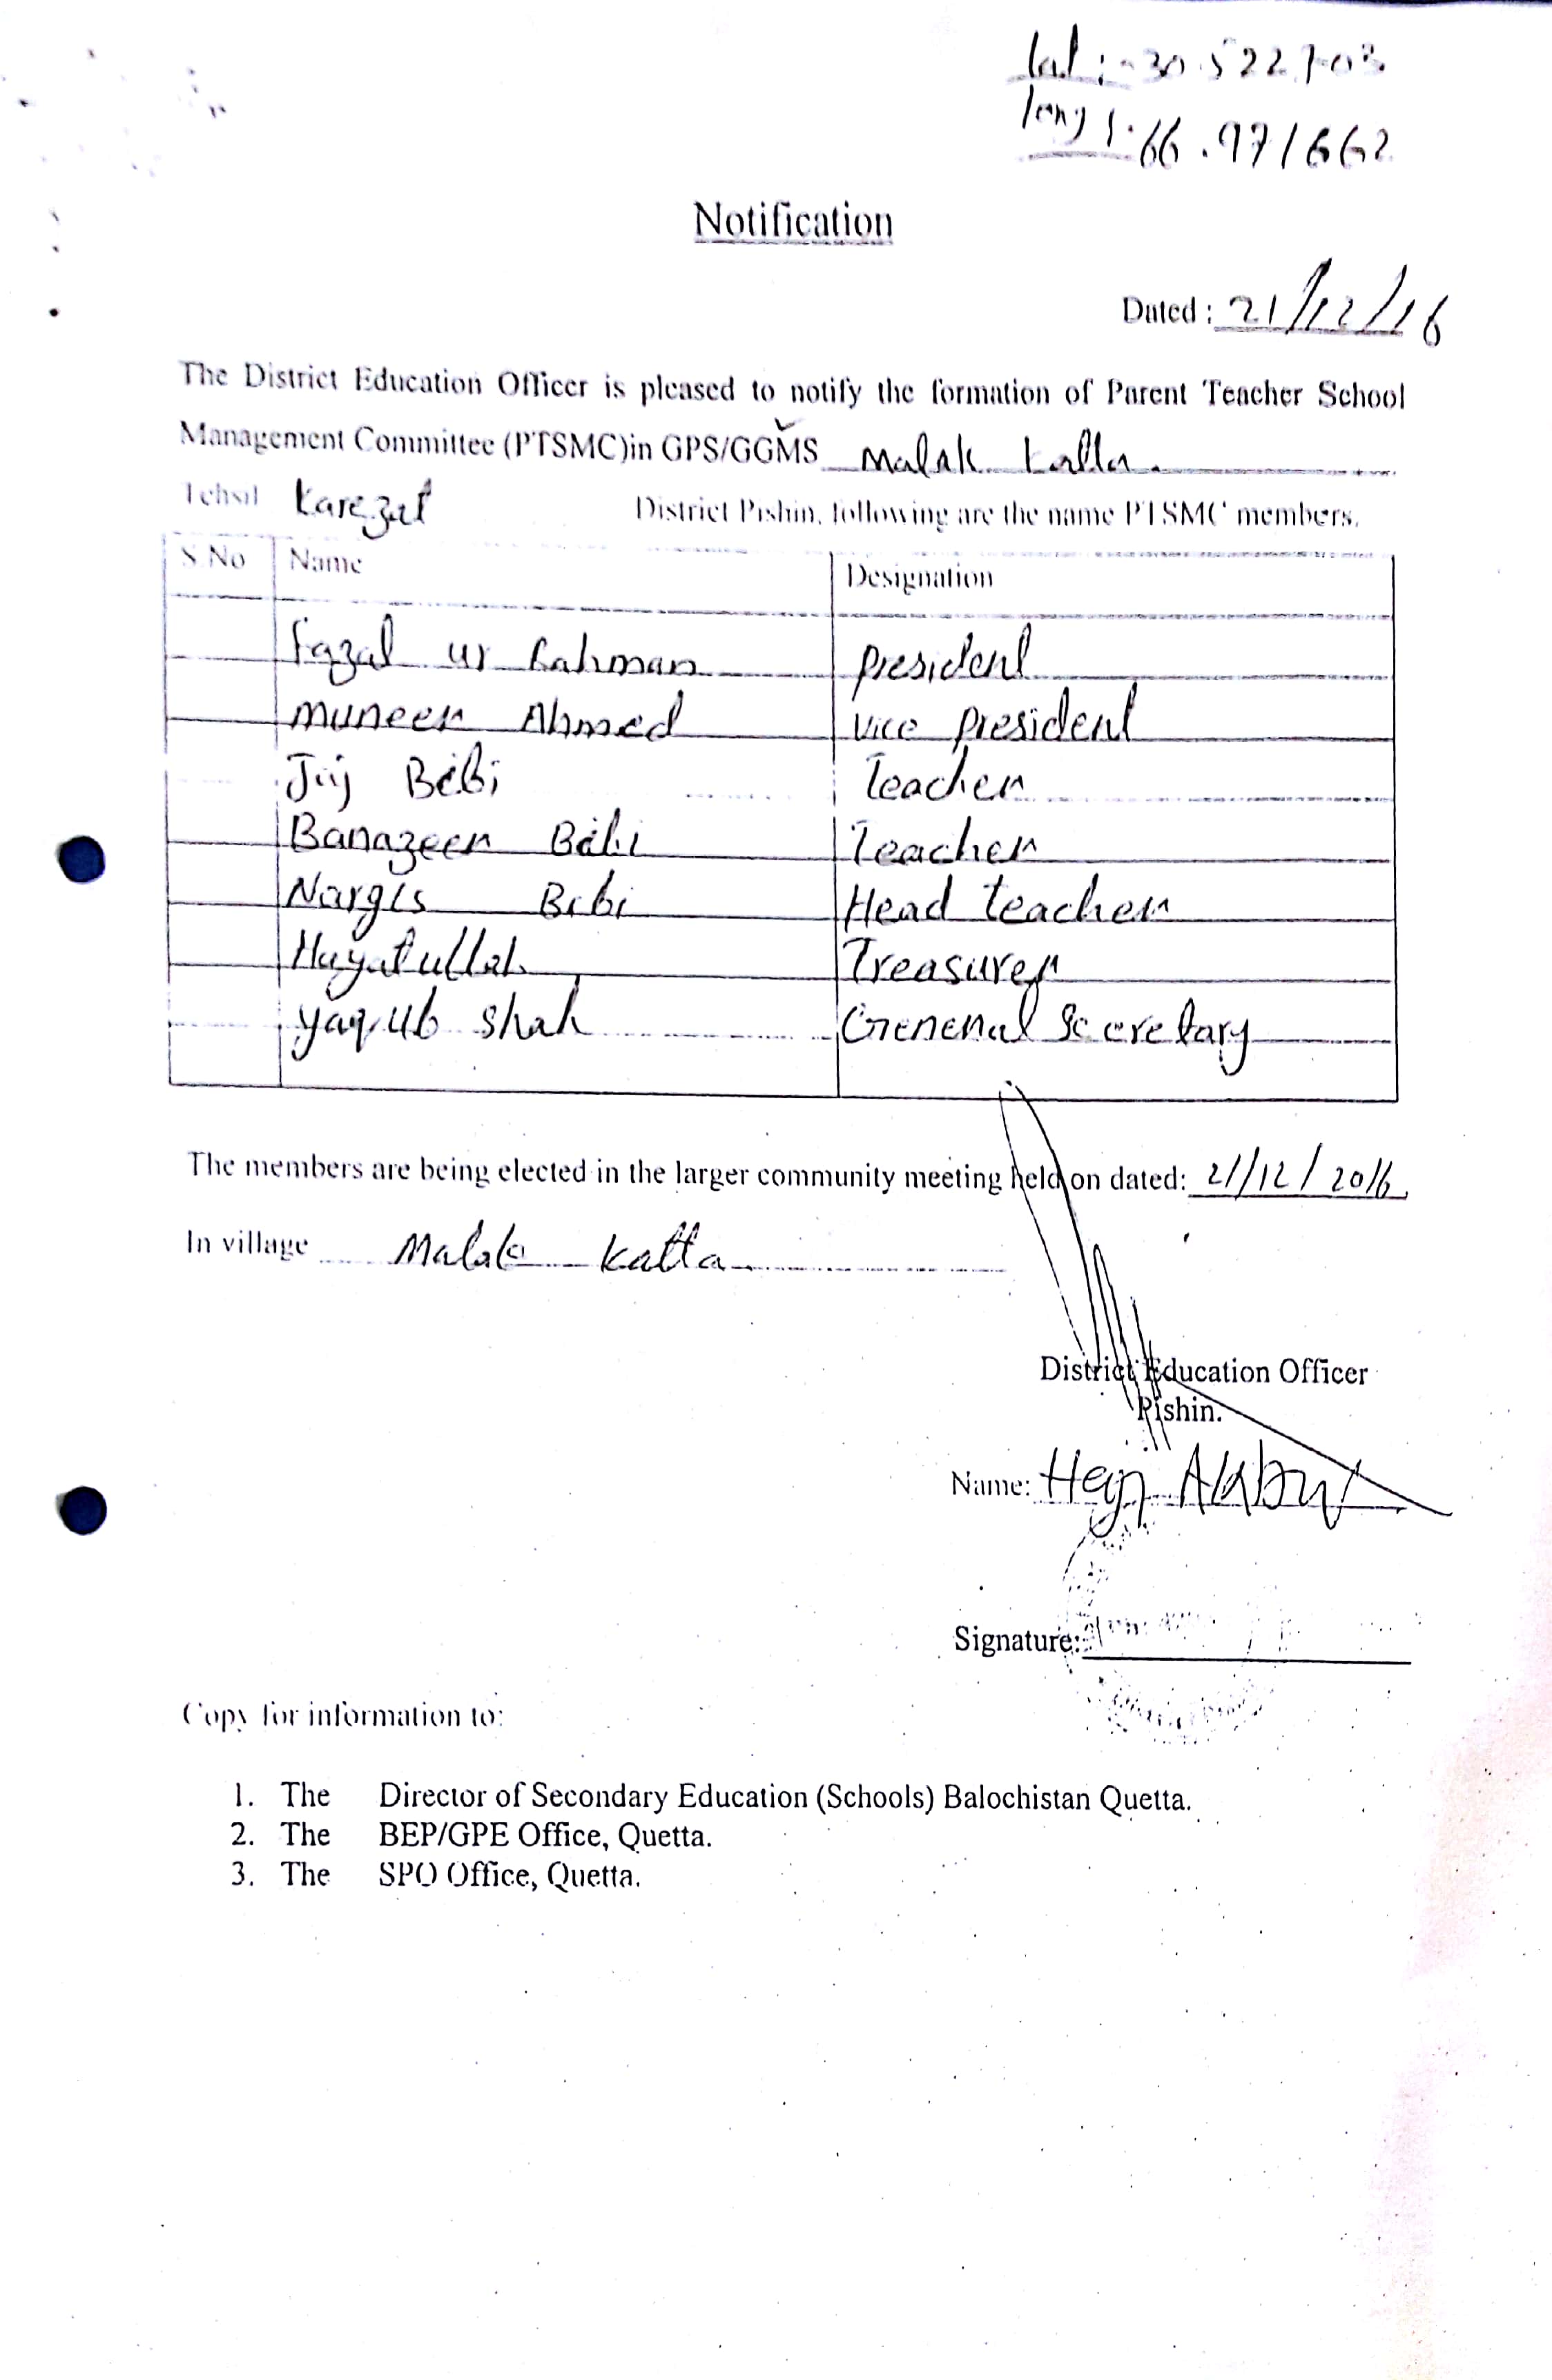 lat :- 30.522703
long :- 66.971662
Notification
Dated : 21/12/16
The District Education Officer is pleased to notify the formation of Parent Teacher School
Management Committee (PTSMC)in GPS/GGMS Malak Katta
Tehsil Karezat District Pishin, following are the name PTSMC members.
S.No Name Designation
Fazal ur Rahman President
Muneer Ahmed Vice President
Bibi Teacher
Banazeer Bibi Teacher
Nargis Bibi Head teacher
Hayatullah Treasurer
Yaqub Shah General Secretary
The members are being elected in the larger community meeting held on dated: 21/12/2016
In village Malak Katta
District Education Officer
Pishin.
Name: Akbar
Signature:
Copy for information to:
1. The Director of Secondary Education (Schools) Balochistan Quetta.
2. The BEP/GPE Office, Quetta.
3. The SPO Office, Quetta.